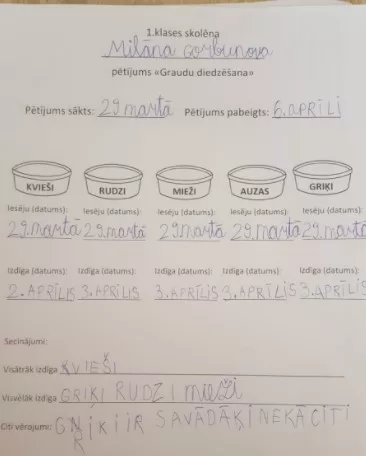 1.klases skolēna
Milāna Gorbunova
pētījums «Graudu diedzēšana»
Pētījums sākts: 29.martā Pētījums pabeigts: 6.APRĪLĪ
KVIEŠI RUDZI MIEŽI AUZAS GRIĶI
Iesēju (datums): Iesēju (datums): Iesēju (datums): Iesēju (datums): Iesēju (datums):
29.martā 29.martā 29.martā 29.martā 29.martā
Izdīga (datums): Izdīga (datums): Izdīga (datums): Izdīga (datums): Izdīga (datums):
2.APRĪLIS 3.APRĪLIS 3.APRĪLIS 3.APRĪLIS 3.APRĪLIS
Secinājumi:
Visātrāk izdīga KVIEŠI
Visvēlāk izdīga GRIĶI RUDZI mieži
Citi vērojumi: GRIĶI IR SAVĀDĀKI NEKĀ CITI